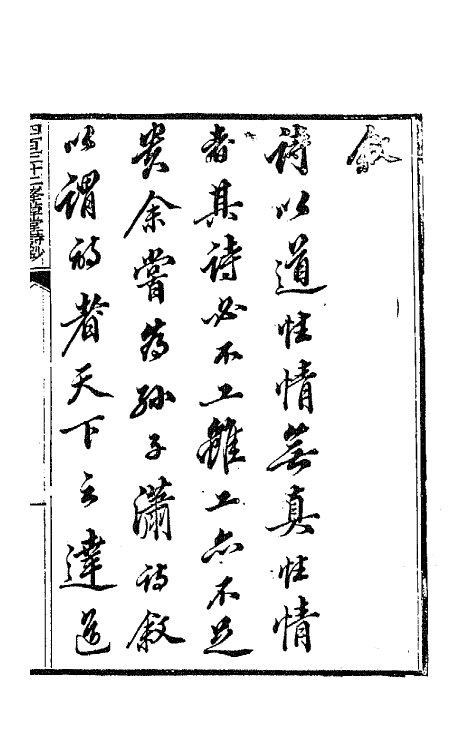 敘
詩以道性情無真性情
者其詩必不工雖工亦不足
貴余嘗為孫子瀟詩敘
以謂詩者天下之達道
四百三十二峯草堂詩鈔